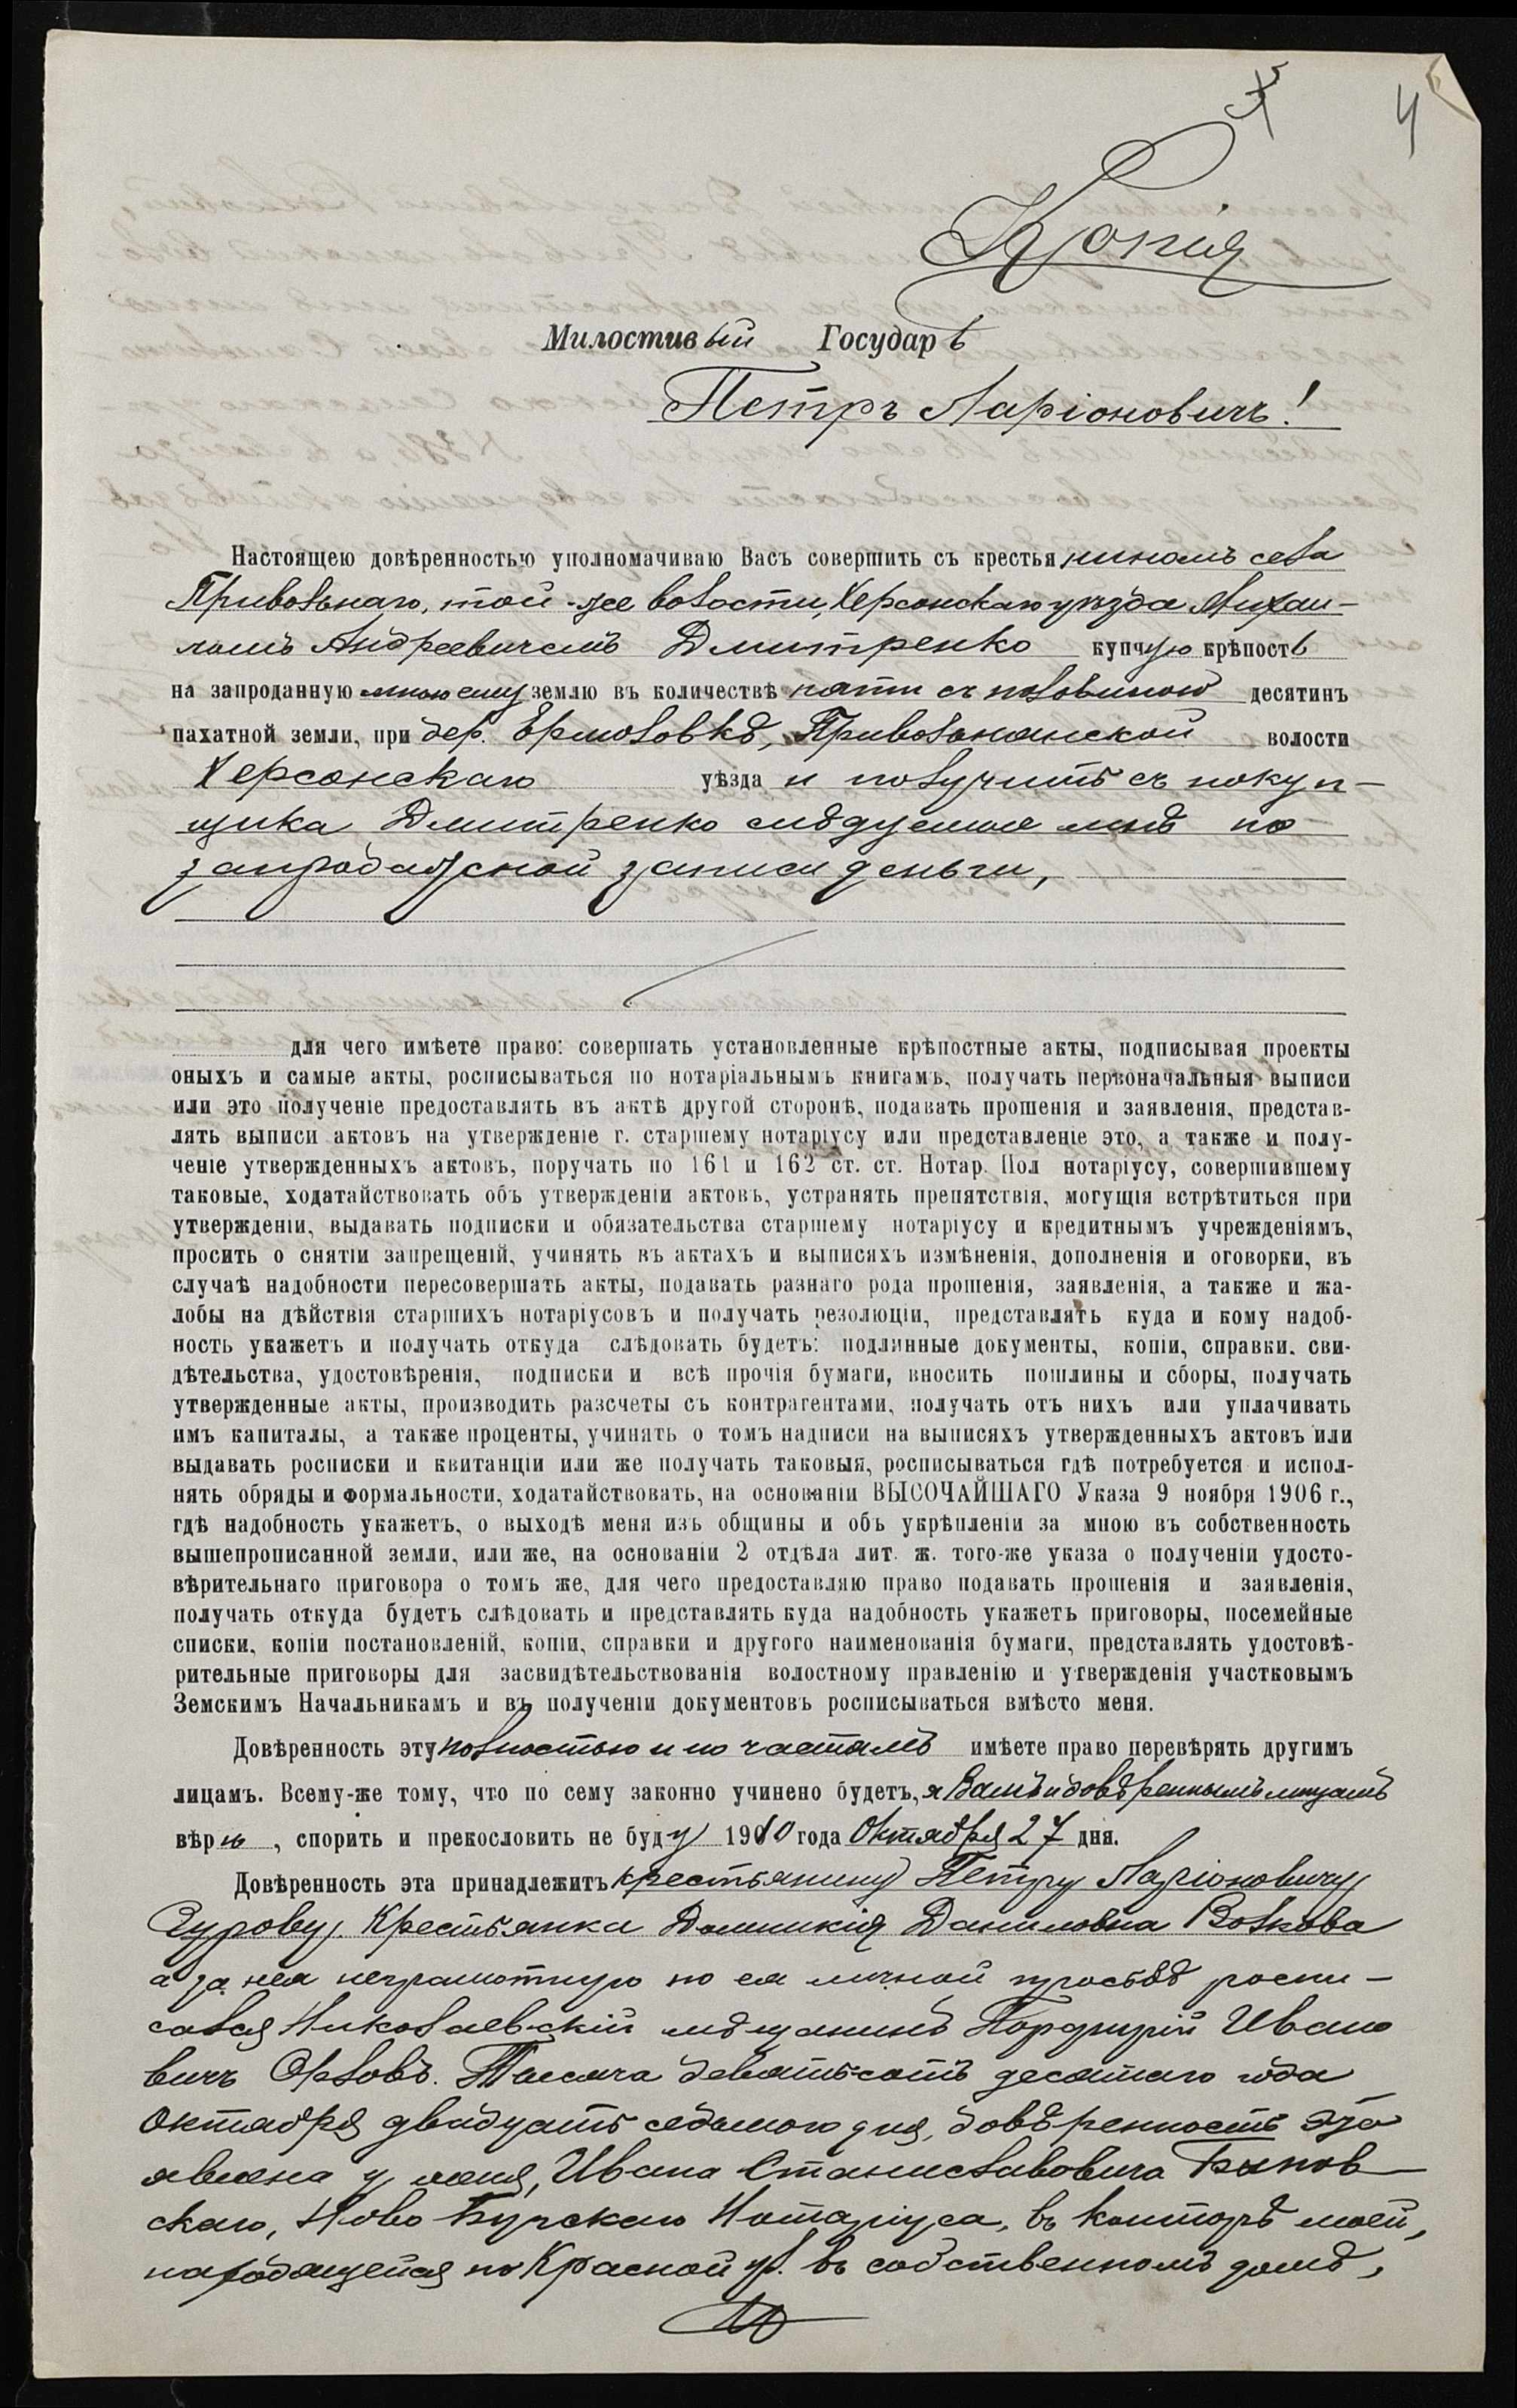 4
Копія
Милостивый Государь
Петръ Ларіоновичъ!
Настоящею довѣренностью уполномачиваю Васъ совершить съ крестьяниномъ села
Привольнаго, той-же волости, Херсонскаго уѣзда Михаи-
ломъ Андреевичемъ Дмитренко купчую крѣпость
на запроданную мною ему землю въ количествѣ пяти съ половиною десятинъ
пахатной земли, при дер. Ермоловкѣ, Привольнянской волости
Херсонскаго уѣзда и получить съ покуп-
щика Дмитренко слѣдуемые мнѣ по
запродажной записи деньги,
для чего имѣете право: совершать установленные крѣпостные акты, подписывая проекты
оныхъ и самые акты, росписываться по нотаріальнымъ книгамъ, получать первоначальныя выписи
или это полученіе предоставлять въ актѣ другой сторонѣ, подавать прошенія и заявленія, представ-
лять выписи актовъ на утвержденіе г. старшему нотаріусу или представленіе это, а также и полу-
ченіе утвержденныхъ актовъ, поручать по 161 и 162 ст. ст. Нотар. Пол нотаріусу, совершившему
таковые, ходатайствовать объ утвержденіи актовъ, устранять препятствія, могущія встрѣтиться при
утвержденіи, выдавать подписки и обязательства старшему нотаріусу и кредитнымъ учрежденіямъ,
просить о снятіи запрещеній, учинять въ актахъ и выписяхъ измѣненія, дополненія и оговорки, въ
случаѣ надобности пересовершать акты, подавать разнаго рода прошенія, заявленія, а также и жа-
лобы на дѣйствія старшихъ нотаріусовъ и получать резолюціи, представлять куда и кому надоб-
ность укажетъ и получать откуда слѣдовать будетъ: подлинные документы, копіи, справки. сви-
дѣтельства, удостовѣренія, подписки и всѣ прочія бумаги, вносить пошлины и сборы, получать
утвержденные акты, производить разсчеты съ контрагентами, получать отъ нихъ или уплачивать
имъ капиталы, а также проценты, учинять о томъ надписи на выписяхъ утвержденныхъ актовъ или
выдавать росписки и квитанціи или же получать таковыя, росписываться гдѣ потребуется и испол-
нять обряды и формальности, ходатайствовать, на основаніи ВЫСОЧАЙШАГО Указа 9 ноября 1906 г.,
гдѣ надобность укажетъ, о выходѣ меня изъ общины и объ укрѣпленіи за мною въ собственность
вышепрописанной земли, или же, на основаніи 2 отдѣла лит. ж. того-же указа о полученіи удосто-
вѣрительнаго приговора о томъ же, для чего предоставляю право подавать прошенія и заявленія,
получать откуда будетъ слѣдовать и представлять куда надобность укажетъ приговоры, посемейные
списки, копіи постановленій, копіи, справки и другого наименованія бумаги, представлять удостовѣ-
рительные приговоры для засвидѣтельствованія волостному правленію и утвержденія участковымъ
Земскимъ Начальникамъ и въ полученіи документовъ росписываться вмѣсто меня.
Довѣренность эту полностью и по частямъ имѣете право перевѣрять другимъ
лицамъ. Всему-же тому, что по сему законно учинено будетъ, я Вамъ и довѣреннымъ лицамъ
вѣрю, спорить и прекословить не буду 1910 года Октября 27 дня.
Довѣренность эта принадлежитъ крестьянину Петру Ларіоновичу
Крестьянка Домникія Даниловна Волкова
а за нея неграмотную по ея личной просьбѣ роспи-
сался Николаевскій мѣщанинъ Порфирій Ивано
вичъ Орловъ. Тысяча девятьсотъ десятаго года
Октября двадцать седьмого дня, довѣренность эта
явлена у меня, Ивана Станиславовича
скаго, Ново Бугскаго Нотаріуса, въ конторѣ моей,
находящейся по Красной ул. въ собственномъ домѣ,